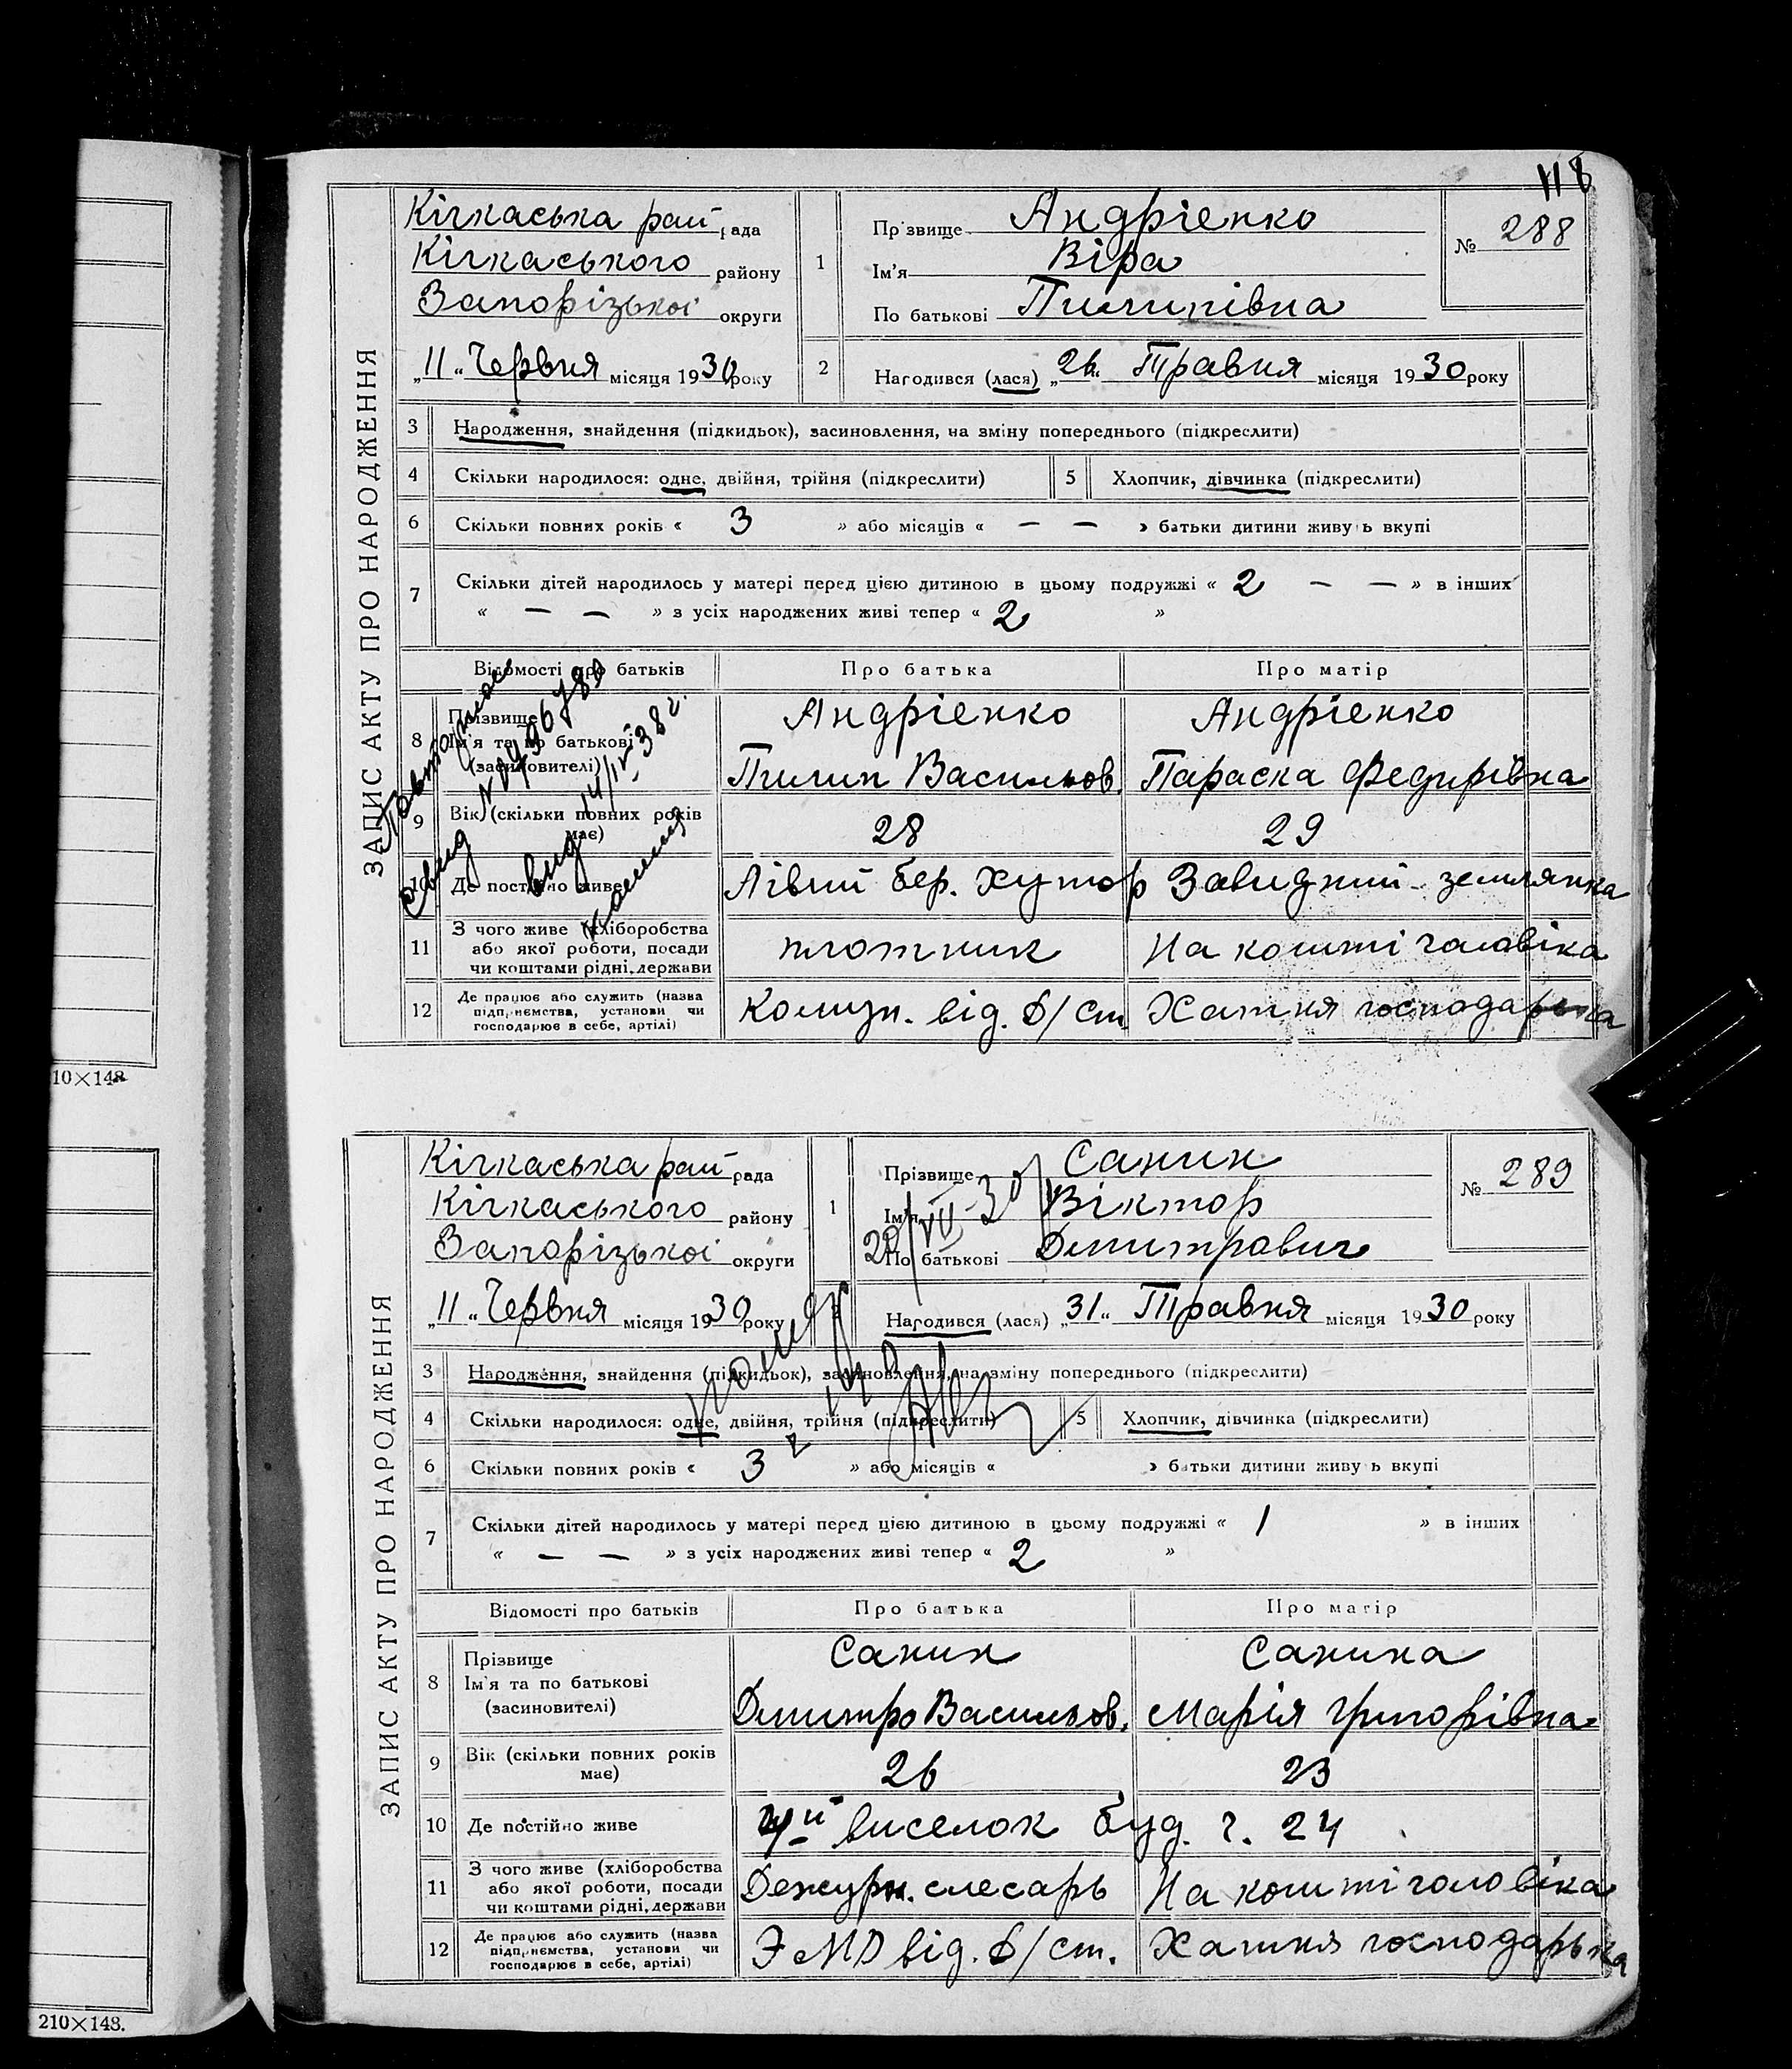 118
Кічкаська рай рада
Кічкаського району
Запорізької округи
„11„ Червня місяця 1930 року
1
Прізвище Андрієнко
Ім'я Віра
По батькові Пилипівна
№ 288
2
Народився (лася) „26„ Травня місяця 1930 року
ЗАПИС АКТУ ПРО НАРОДЖЕННЯ
3 Народження, знайдення (підкидьок), засиновлення, на зміну попереднього (підкреслити)
4 Скільки народилося: одне, двійня, трійня (підкреслити) 5 Хлопчик, дівчинка (підкреслити)
6 Скільки повних років « 3 » або місяців « — — » батьки дитини живуть вкупі
7 Скільки дітей народилось у матері перед цією дитиною в цьому подружжі « 2 — — » в інших
« — — » з усіх народжених живі тепер « 2 »
Відомості про батьків Про батька Про матір
8 Прізвище
Ім'я та по батькові
(засиновителі)
Андрієнко
Пилип Васильов.
Андрієнко
Параска Федирівна
9 Вік (скільки повних років має) 28 29
10 Де постійно живе Лівий бер. Хутор Завидний - землянка
11 З чого живе (хліборобства
або якої роботи, посади
чи коштами рідні, держави
плотник
На кошті чоловіка
12 Де працює або служить (назва
підприємства, установи чи
господарює в себе, артілі)
Комун. від. б/ст.
Хатня господарька
Повторное
свид
вид 14/IV-38 г.
10×148
Кічкаська рай рада
Кічкаського району
Запорізької округи
„11„ Червня місяця 1930 року
1
Прізвище Санин
Ім'я Віктор
По батькові Дмитрович
№ 289
20/VII-30
Народився (лася) „31„ Травня місяця 1930 року
ЗАПИС АКТУ ПРО НАРОДЖЕННЯ
3 Народження, знайдення (підкидьок), засиновлення, на зміну попереднього (підкреслити)
4 Скільки народилося: одне, двійня, трійня (підкреслити) 5 Хлопчик, дівчинка (підкреслити)
6 Скільки повних років « 3 » або місяців « » батьки дитини живуть вкупі
7 Скільки дітей народилось у матері перед цією дитиною в цьому подружжі « 1 » в інших
« — — » з усіх народжених живі тепер « 2 »
Відомості про батьків Про батька Про матір
8 Прізвище
Ім'я та по батькові
(засиновителі)
Санин
Дмитро Васильов.
Санина
Марія Григорівна
9 Вік (скільки повних років має) 26 23
10 Де постійно живе 4й виселок буд. ч. 24
11 З чого живе (хліборобства
або якої роботи, посади
чи коштами рідні, держави
Дежурн. слесарь
На кошті чоловіка
12 Де працює або служить (назва
підприємства, установи чи
господарює в себе, артілі)
ЭМД від. б/ст.
Хатня господарька
210×148.